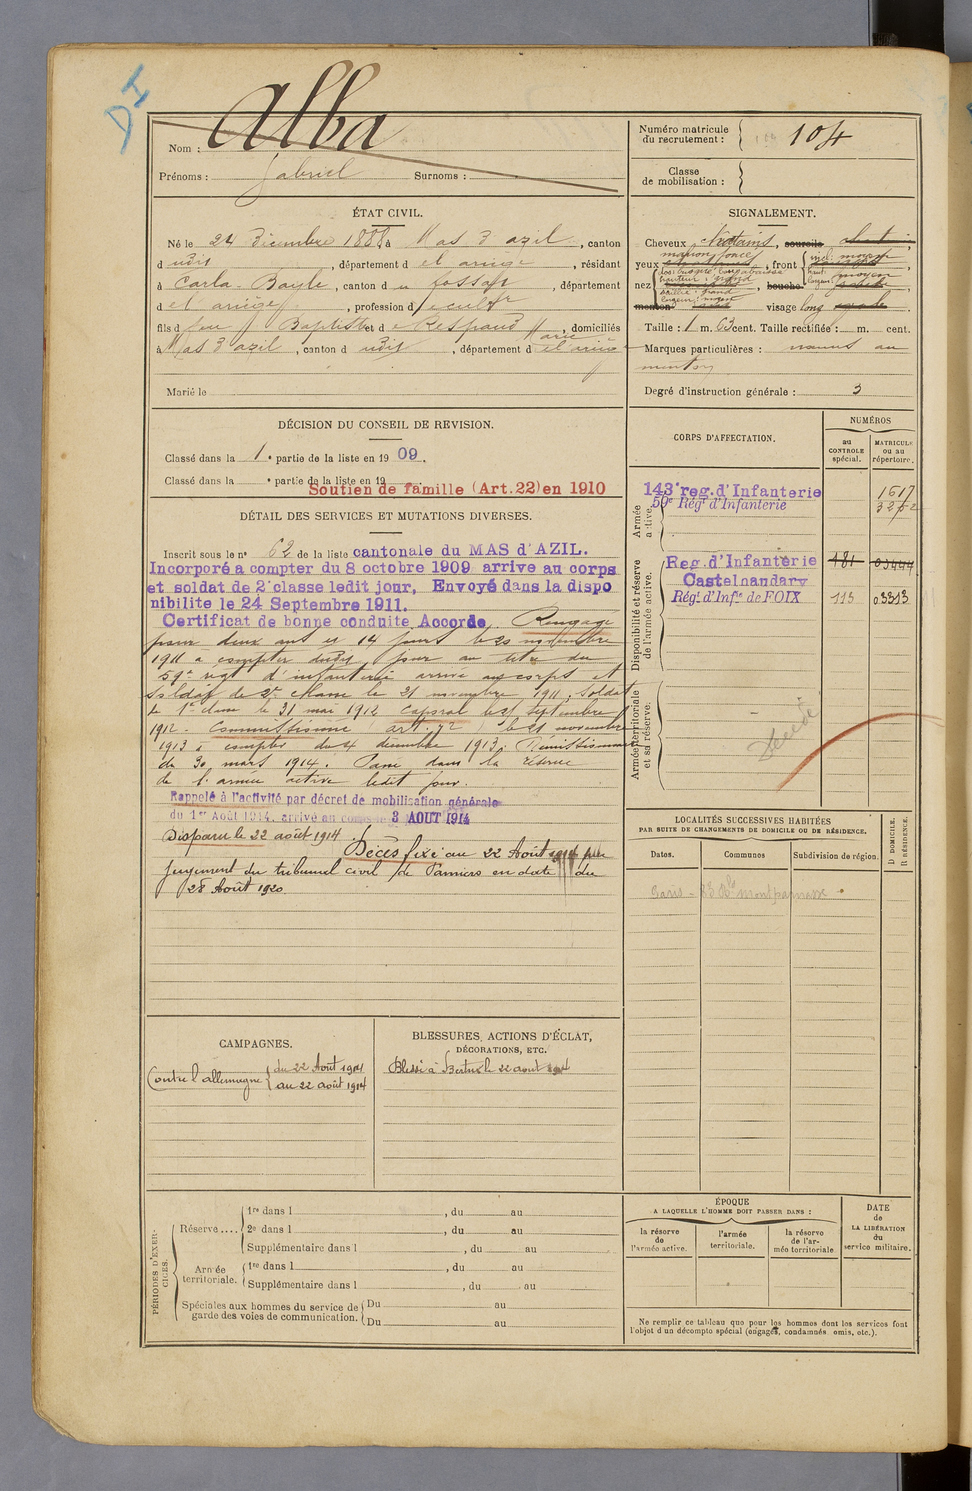 DI
Nom : Alba
Prénoms : Gabriel Surnoms :
Numéro matricule du recrutement : 104
Classe de mobilisation :
ÉTAT CIVIL.
Né le 24 Décembre 1888, à Mas d'azil, canton
d udit, département d el ariège, résidant
à Carla-Bayle, canton d u fossat, département
d el ariège, profession d
fils d feu Baptiste et d e Respaud Marie, domiciliés
à Mas d'azil, canton d udit, département d el ariège
Marié le
SIGNALEMENT.
Cheveux chatains, sourcils
yeux marron foncé, front incl: moyen
haut: moyen
nez dos: busqué bouche
hauteur: grand
saillie: grand
largeur: moyen
menton visage long
Taille : 1 m. 63 cent. Taille rectifiée : m. cent.
Marques particulières : nævus au
menton
Degré d'instruction générale : 3
DÉCISION DU CONSEIL DE REVISION.
Classé dans la 1e partie de la liste en 1909.
Classé dans la e partie de la liste en 19
Soutien de famille (Art.22) en 1910
DÉTAIL DES SERVICES ET MUTATIONS DIVERSES.
Inscrit sous le n° 62 de la liste cantonale du MAS d'AZIL.
Incorporé a compter du 8 octobre 1909 arrive au corps
et soldat de 2e classe ledit jour, Envoyé dans la dispo
nibilite le 24 Septembre 1911.
Certificat de bonne conduite Accordé Rengagé
pour deux ans et 14 jours le 20 novembre
1911 à compter dudit jour au titre du
59e régt d'infanterie arrivé au corps et
Soldat de 2e classe le 21 novembre 1911. Soldat
de 1e classe le 31 mai 1912 Caporal le 21 septembre
1912. Commissionné art. 72 le 21 novembre
1913 à compter du 4 décembre 1913. Démissionnaire
du 30 mars 1914. Passé dans la réserve
de l'armée active ledit jour.
Rappelé à l'activité par décret de mobilisation générale
du 1er Août 1914. arrivé au corps le 3 AOUT 1914
Disparu le 22 août 1914. Décès fixé au 22 Août 1914 par
jugement du tribunal civil de Pamiers en date du
28 Août 1920
CORPS D'AFFECTATION.
NUMÉROS
au CONTROLE spécial.
MATRICULE ou au répertoire.
Armée active.
143e reg. d'Infanterie 1617
59e Régt d'Infanterie 3252
Disponibilité et réserve de l'armée active.
Reg. d'Infanterie 181 03444
Castelnaudary
Régt d'Infie de FOIX 113 03313
Armée territoriale et sa réserve.
Décédé
LOCALITÉS SUCCESSIVES HABITÉES
PAR SUITE DE CHANGEMENTS DE DOMICILE OU DE RÉSIDENCE.
Dates. Communes Subdivision de région. D DOMICILE. R RÉSIDENCE.
Paris - Bd montparnasse
CAMPAGNES.
Contre l'allemagne du 22 Août 1914
au 22 août 1914
BLESSURES, ACTIONS D'ÉCLAT,
DÉCORATIONS, ETC.
Blessé à Bertrix le 22 août 1914
PÉRIODES D'EXERCICES.
Réserve .... 1re dans l , du au
2e dans l , du au
Supplémentaire dans l , du au
Armée territoriale. 1re dans l , du au
Supplémentaire dans l , du au
Spéciales aux hommes du service de garde des voies de communication. Du au
Du au
ÉPOQUE
A LAQUELLE L'HOMME DOIT PASSER DANS :
la réserve de l'armée active.
l'armée territoriale.
la réserve de l'armée territoriale
DATE de LA LIBÉRATION du service militaire.
Ne remplir ce tableau que pour les hommes dont les services font
l'objet d'un décompte spécial (engagés, condamnés omis, etc.).